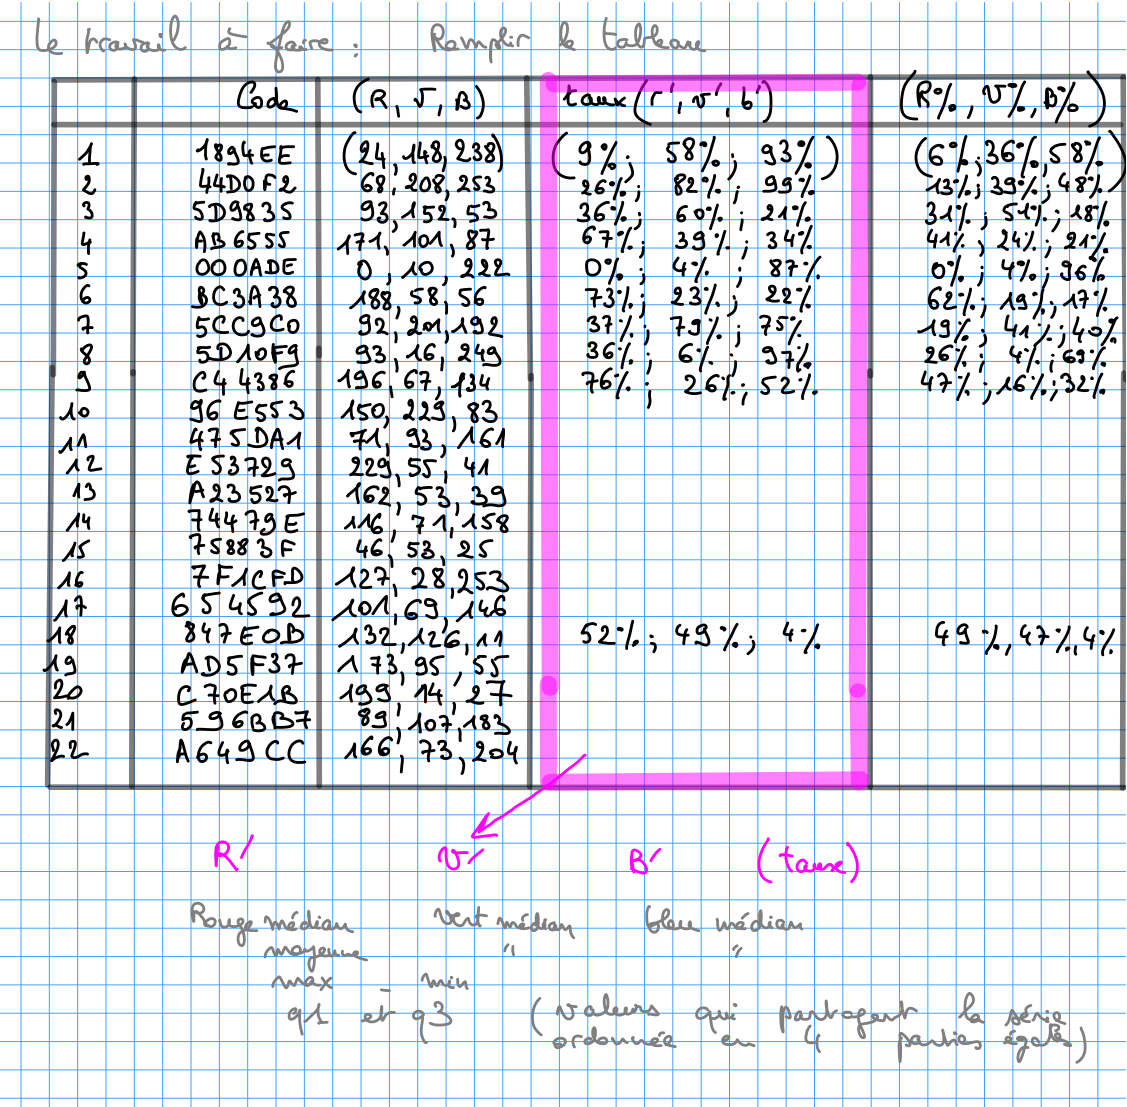 Le travail à faire : Remplir le tableau
Code (R, V, B) taux (r', v', b') (R%, V%, B%)
1 1894EE (24, 148, 238) (9%; 58%; 93%) (6%; 36%, 58%)
2 44D0F2 68, 208, 253 26%; 82%; 99% 13%; 39%; 48%
3 5D9835 93, 152, 53 36%; 60%; 21% 31%; 51%; 18%
4 AB6555 171, 101, 87 67%; 39%; 34% 41%; 24%; 21%
5 000ADE 0, 10, 222 0%; 4%; 87% 0%; 4%; 96%
6 BC3A38 188, 58, 56 73%; 23%; 22% 62%; 19%; 17%
7 5CC9C0 92, 201, 192 37%; 79%; 75% 19%; 41%; 40%
8 5D10F9 93, 16, 249 36%; 6%; 97% 26%; 4%; 69%
9 C44386 196, 67, 134 76%; 26%; 52% 47%; 16%; 32%
10 96E553 150, 229, 83
11 475DA1 71, 93, 161
12 E53729 229, 55, 41
13 A23527 162, 53, 39
14 74479E 116, 71, 158
15 75883F 46, 53, 25
16 7F1CFD 127, 28, 253
17 654592 101, 69, 146
18 847E0B 132, 126, 11 52%; 49%; 4% 49%, 47%, 4%
19 AD5F37 173, 95, 55
20 C70E1B 199, 14, 27
21 596BB7 89, 107, 183
22 A649CC 166, 73, 204
R' V' B' (taux)
Rouge médian vert médian bleu médian
moyenne " "
max - min
q1 et q3 (valeurs qui partagent la série
ordonnée en 4 parties égales)